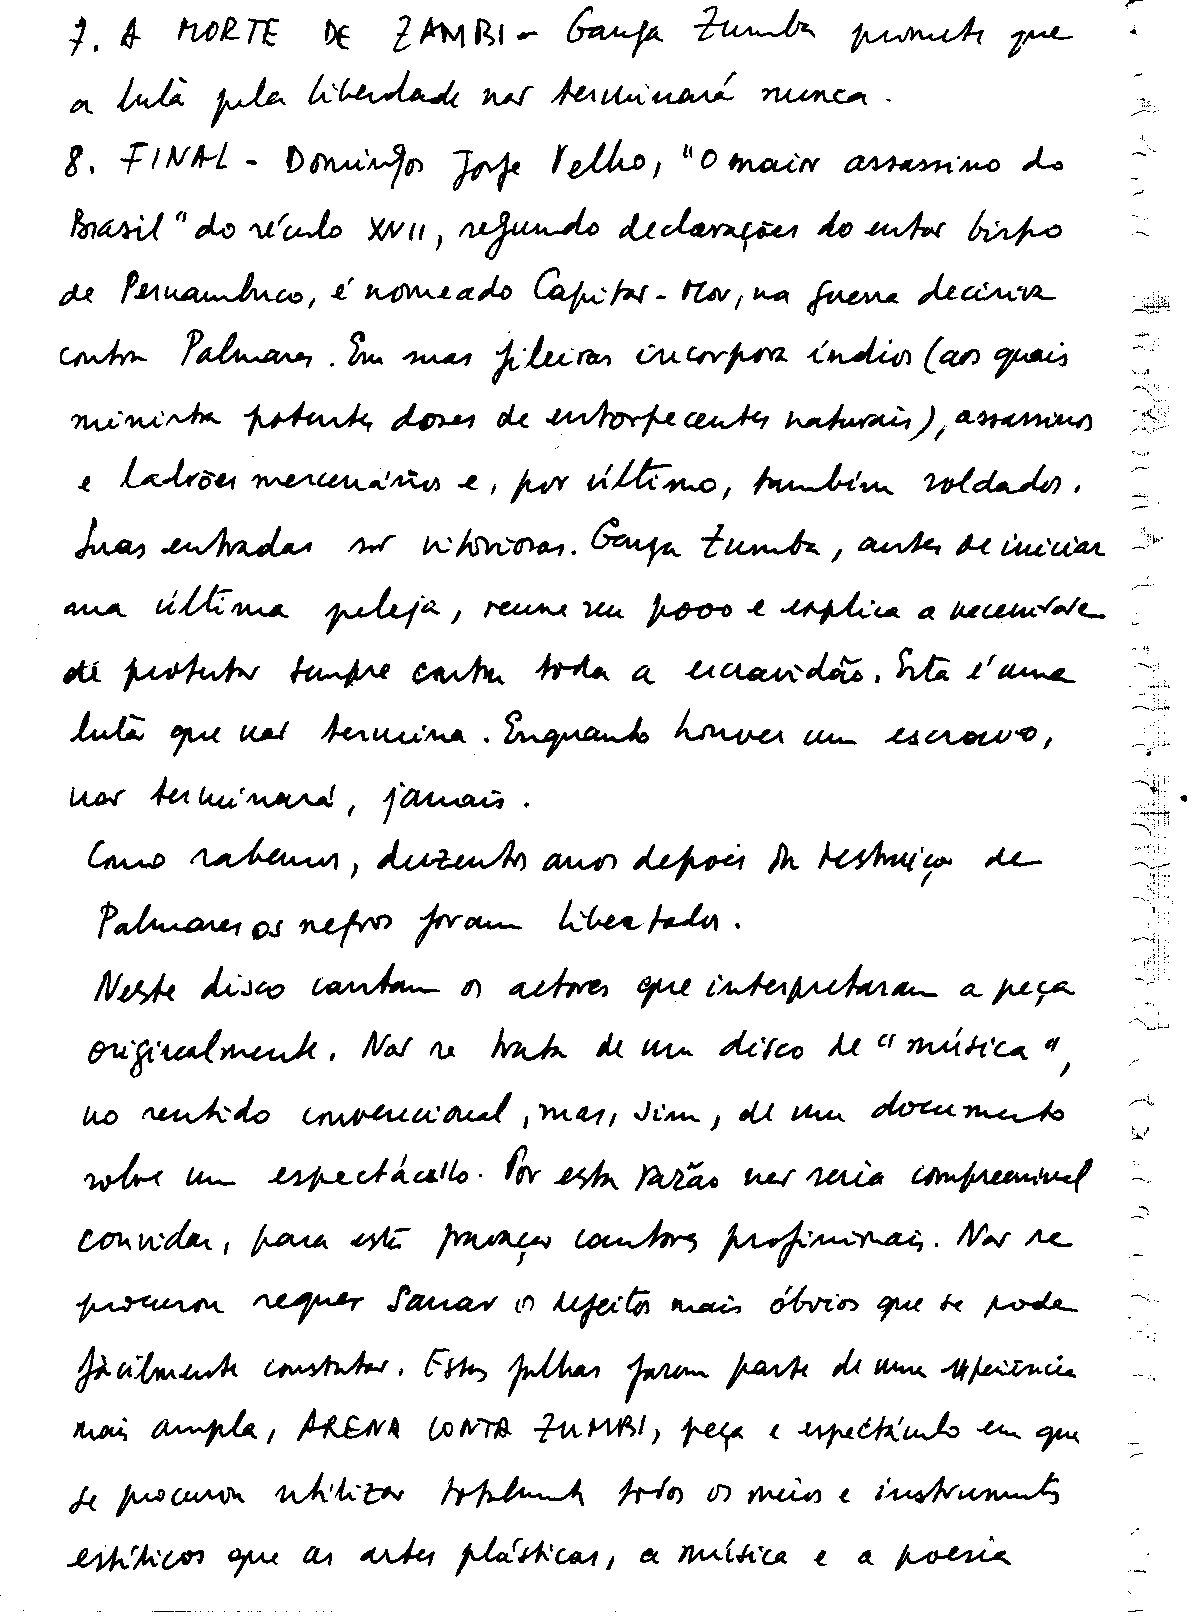 7. A MORTE DE ZAMBI - Ganga Zumba promete que
a luta pela liberdade não terminará nunca.
8. FINAL - Domingos Jorge Velho, "O maior assassino do
Brasil" do século XVII, segundo declarações do então bispo
de Pernambuco, é nomeado Capitão-Mor, na guerra decisiva
contra Palmares. Em suas fileiras incorpora índios (aos quais
ministra potentes doses de entorpecentes naturais), assassinos
e ladrões mercenários e, por último, também soldados.
Suas entradas são vitoriosas. Ganga Zumba, antes de iniciar
sua última peleja, reune seu povo e explica a necessidade
de protestar sempre contra toda a escravidão. Esta é uma
luta que não termina. Enquanto houver um escravo,
não terminará, jamais.
Como sabemos, duzentos anos depois da destruição de
Palmares os negros foram libertados.
Neste disco cantam os actores que interpretaram a peça
originalmente. Não se trata de um disco de "música",
no sentido convencional, mas, sim, de um documento
sobre um espectáculo. Por esta razão não seria compreensível
convidar, para esta gravação cantores profissionais. Não se
procurou sequer sanar os defeitos mais óbvios que se pode
fàcilmente constatar. Estas falhas fazem parte de uma experiência
mais ampla, ARENA CONTA ZUMBI, peça e espectáculo em que
se procurou utilizar totalmente todos os meios e instrumentos
estéticos que as artes plásticas, a música e a poesia